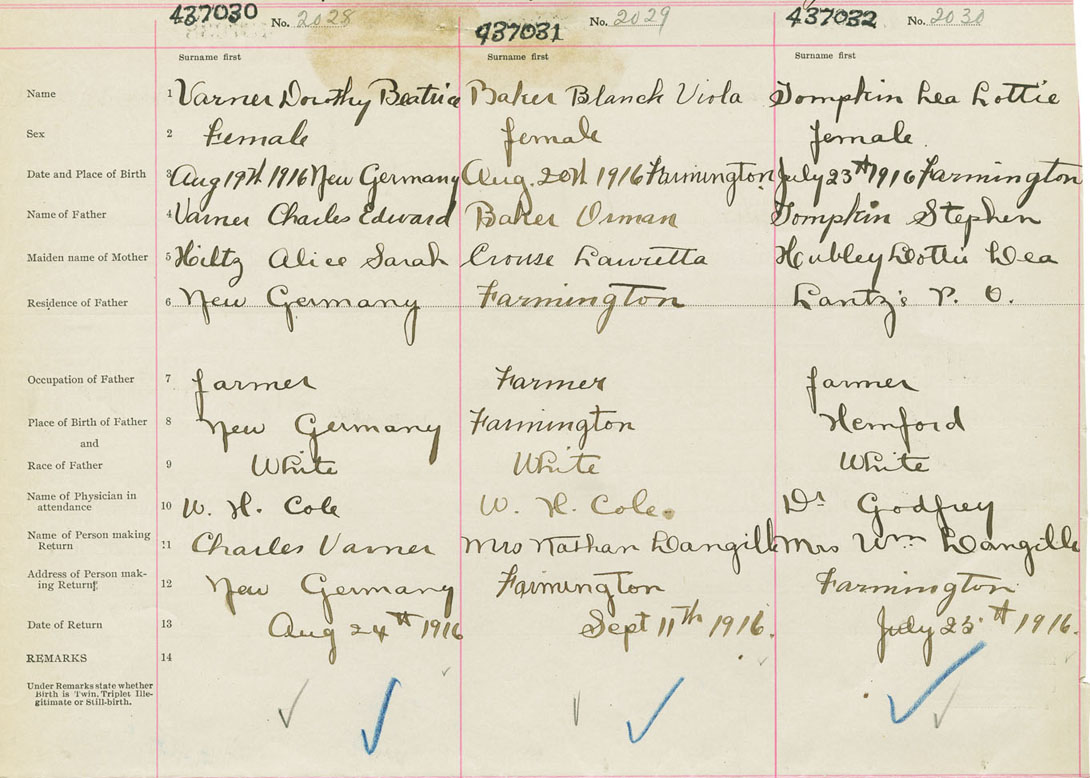 437030 No. 2028 437031 No. 2029 437032 No. 2030
Surname first Surname first Surname first
Name 1 Varner Dorothy Beatrice Baker Blanch Viola Tompkin Lea Lottie
Sex 2 Female female female.
Date and Place of Birth 3 Aug 19th 1916 New Germany Aug. 20th 1916 Farmington July 23th 1916 Farmington
Name of Father 4 Varner Charles Edward Baker Orman Tompkin Stephen
Maiden name of Mother 5 Hiltz Alice Sarah Crouse Lauretta Hubley Lottie Lea
Residence of Father 6 New Germany Farmington Lantz's P. O.
Occupation of Father 7 farmer Farmer farmer
Place of Birth of Father 8 New Germany Farmington Hemford
and
Race of Father 9 White White White
Name of Physician in attendance 10 W. H. Cole W. H. Cole. Dr Godfrey
Name of Person making Return 11 Charles Varner Mrs Nathan Langille Mrs Wm Langille
Address of Person making Return 12 New Germany Farmington Farmington
Date of Return 13 Aug 24th 1916 Sept 11th 1916. July 25th 1916.
REMARKS 14
Under Remarks state whether
Birth is Twin, Triplet Ille-
gitimate or Still-birth.